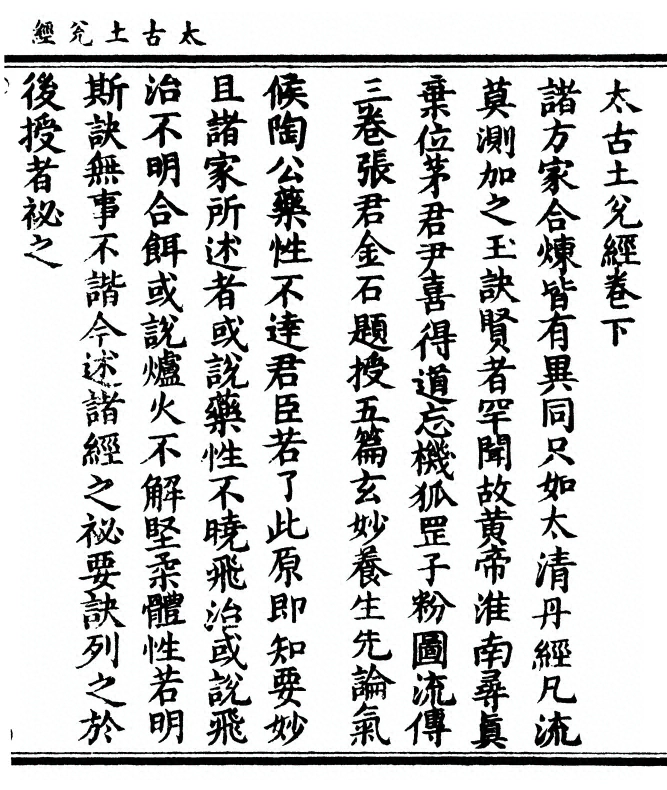 太古土兊經
太古土兊經卷下
諸方家合煉皆有異同只如太清丹經凡流
莫測加之玉訣賢者罕聞故黃帝淮南尋眞
棄位茅君尹喜得道忘機狐罡子粉圖流傳
三卷張君金石題授五篇玄妙養生先論氣
候陶公藥性不達君臣若了此原即知要妙
且諸家所述者或說藥性不曉飛治或說飛
治不明合餌或說爐火不解堅柔體性若明
斯訣無事不諧今述諸經之祕要訣列之於
後授者祕之